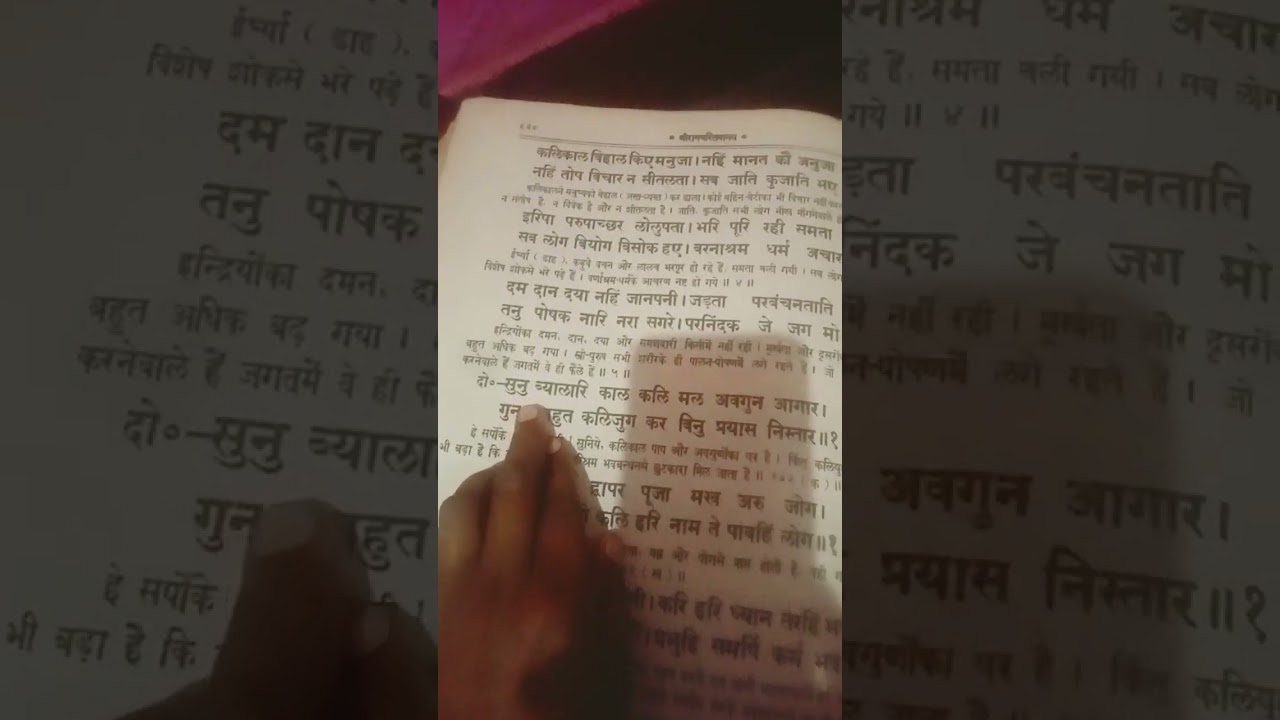 * श्रीरामचरितमानस *
कलिकाल बिहाल किए मनुजा। नहिं मानत क्वौ अनुजा
नहिं तोष बिचार न सीतलता। सब जाति कुजाति भए
कलिकालने मनुष्यको बेहाल (अस्त-व्यस्त) कर डाला। कोई बहिन-बेटीका भी विचार नहीं
न सन्तोष है, न विवेक है और न शीतलता है। जाति, कुजाति सभी लोग भीख माँगनेवाले
इरिषा परुषाच्छर लोलुपता। भरि पूरि रही समता
सब लोग बियोग बिसोक हए। बरनाश्रम धर्म अचार
ईर्ष्या (डाह), कडुवे वचन और लालच भरपूर हो रहे हैं, समता चली गयी। सब लोग
विशेष शोकसे भरे पड़े हैं। वर्णाश्रम-धर्मके आचरण नष्ट हो गये॥४॥
दम दान दया नहिं जानपनी। जड़ता परबंचनताति
तनु पोषक नारि नरा सगरे। परनिंदक जे जग मो
इन्द्रियोंका दमन, दान, दया और समझदारी किसीमें नहीं रही। मूर्खता और दूसरोंको
बहुत अधिक बढ़ गया। स्त्री-पुरुष सभी शरीरके ही पालन-पोषणमें लगे रहते हैं। जो
करनेवाले हैं जगतमें वे ही फैले हैं॥५॥
दो०–सुनु ब्यालारि काल कलि मल अवगुन आगार।
गुन बहुत कलिजुग कर बिनु प्रयास निस्तार॥१
हे सर्पोंके सुनिये, कलिकाल पाप और अवगुणोंका घर है। किंतु कलियु
भी बड़ा है कि भवबन्धनसे छुटकारा मिल जाता है॥१०२ (क)॥
द्वापर पूजा मख अरु जोग।
कलि हरि नाम ते पावहिं लोग॥१
और योगसे प्राप्त होती है, वही
(ख)॥
करि हरि ध्यान तरहिं
प्रभुहि समर्पि कर्म भव